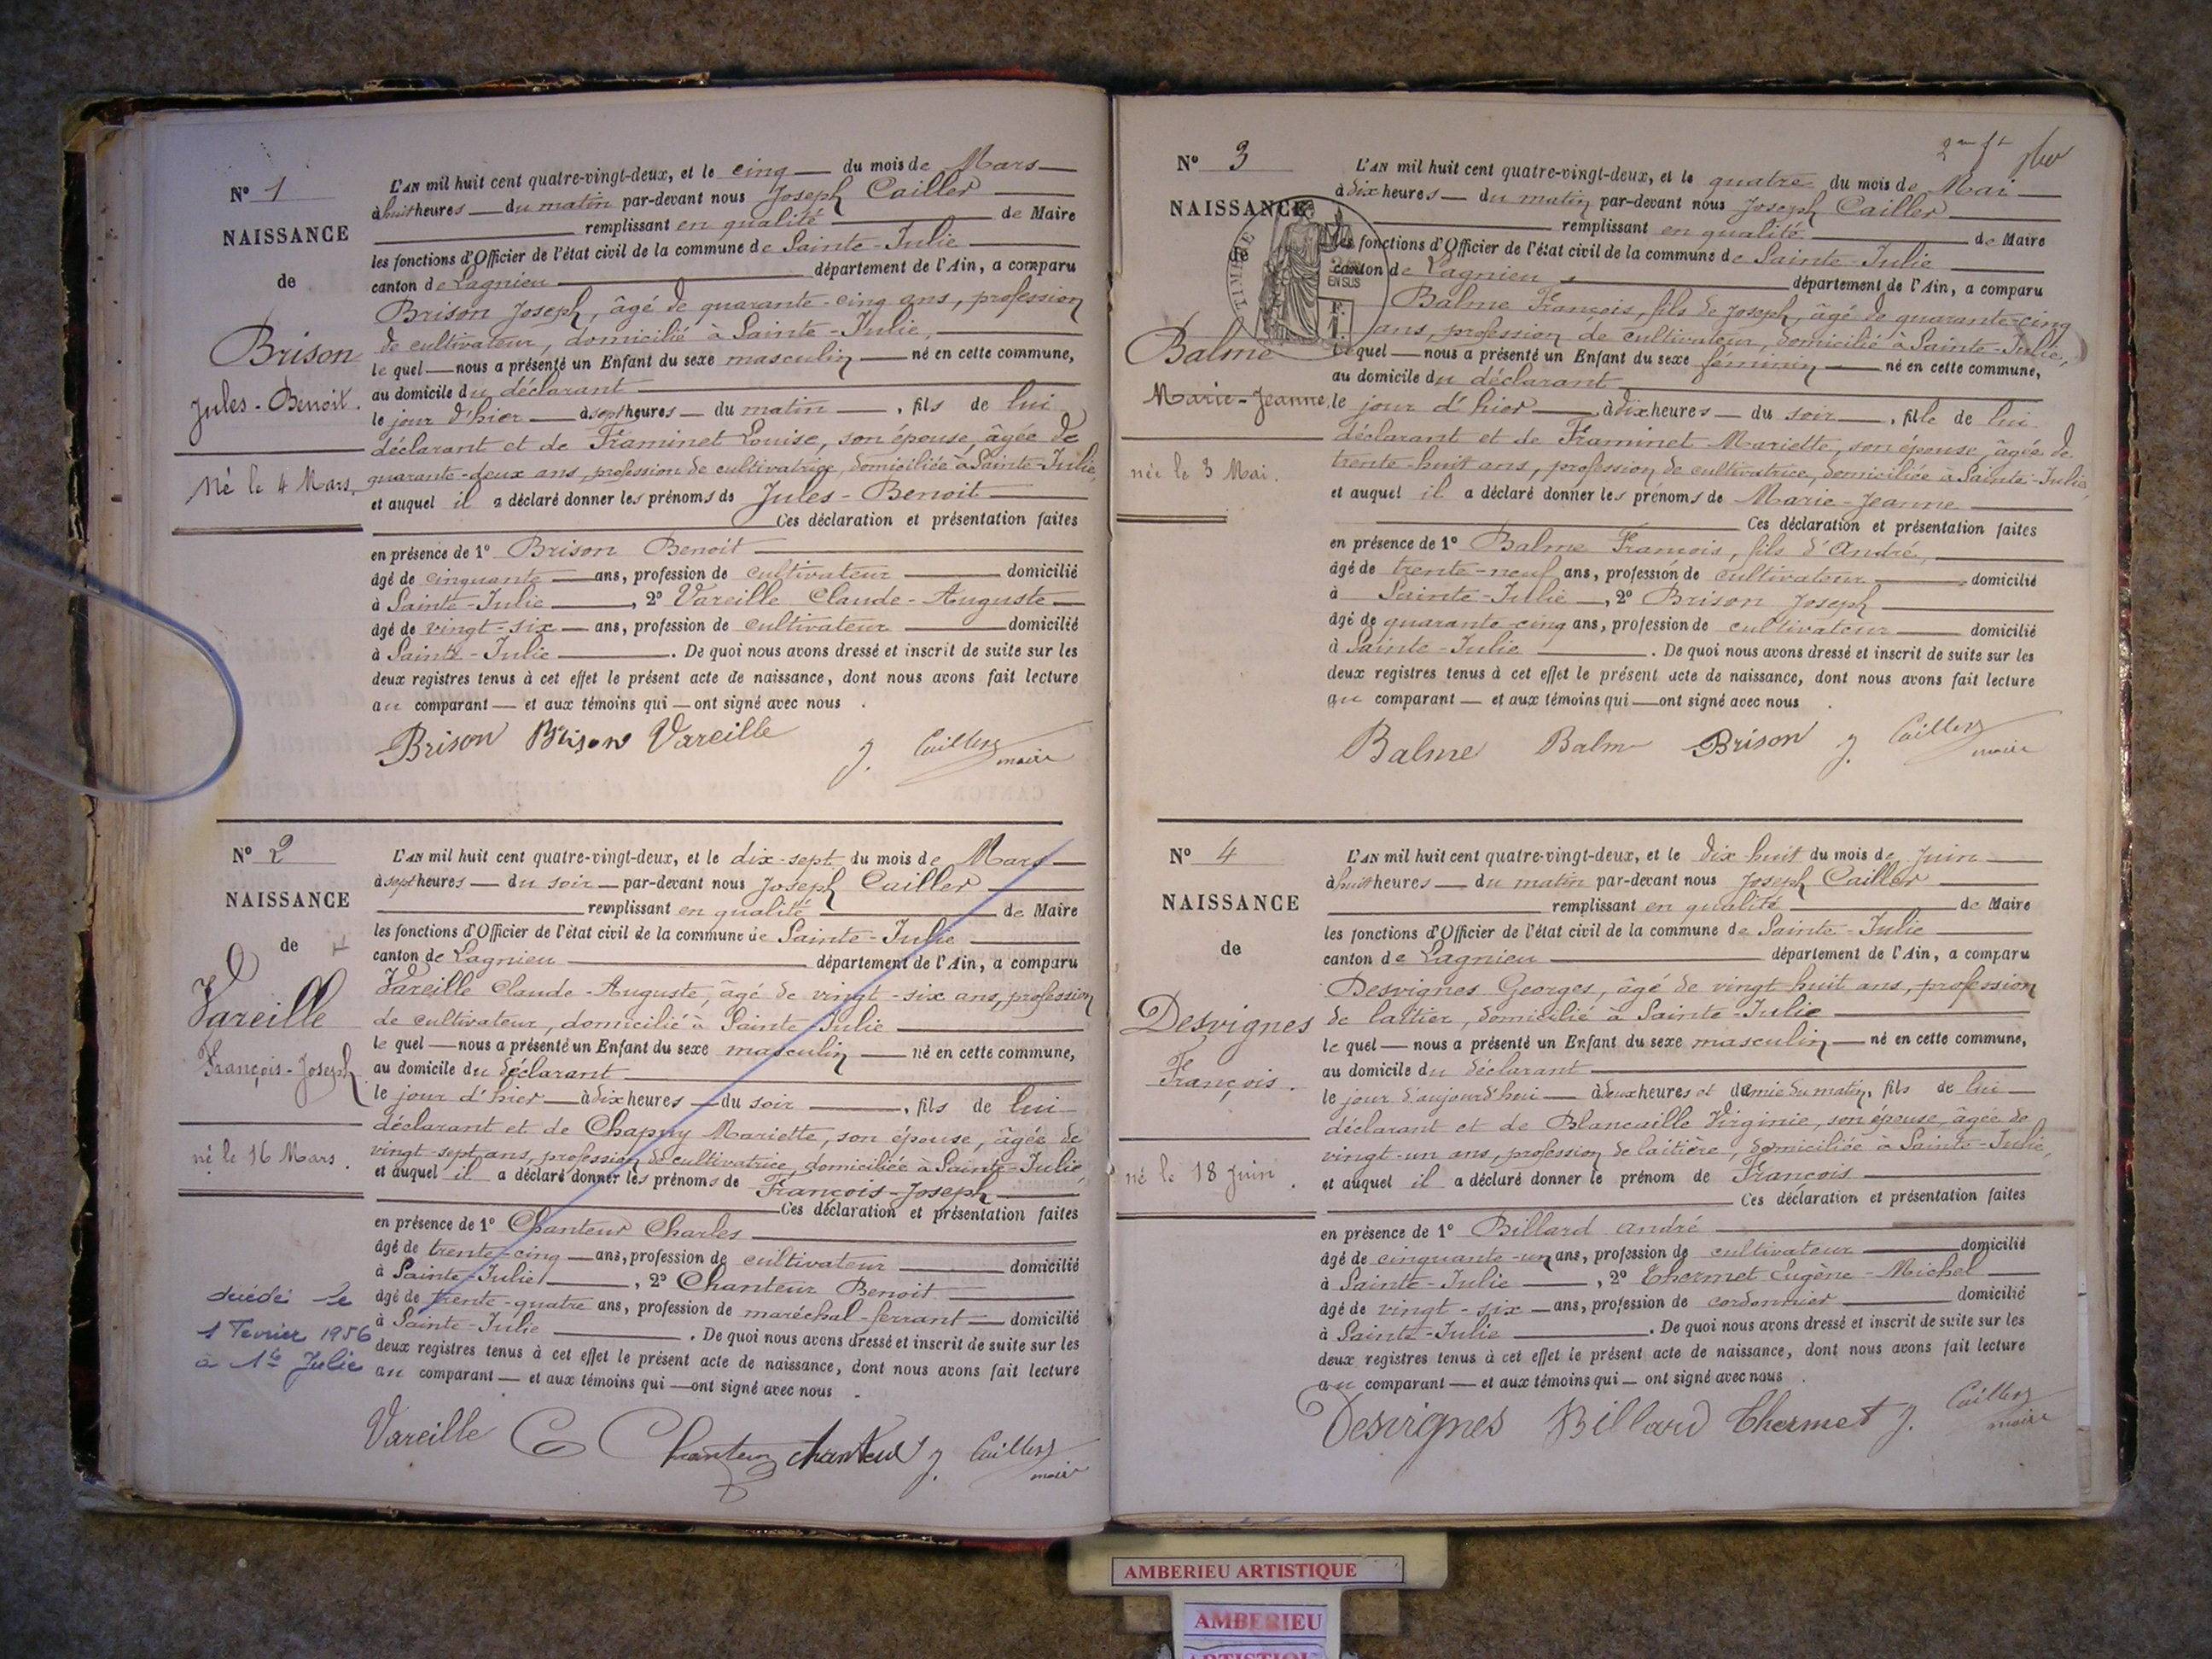 N° 1
NAISSANCE
de
Brison
Jules-Benoit.
Né le 4 Mars.
L'AN mil huit cent quatre-vingt-deux, et le cinq du mois de Mars
à huit heures du matin par-devant nous Joseph Cailler
remplissant en qualité de Maire
les fonctions d'Officier de l'état civil de la commune de Sainte-Julie
canton de Lagnieu département de l'Ain, a comparu
Brison Joseph, âgé de quarante-cinq ans, profession
de cultivateur, domicilié à Sainte-Julie,
le quel nous a présenté un Enfant du sexe masculin né en cette commune,
au domicile du déclarant
le jour d'hier à sept heures du matin, fils de lui
déclarant et de Framinet Louise, son épouse, âgée de
quarante-deux ans, profession de cultivatrice, domiciliée à Sainte-Julie,
et auquel il a déclaré donner les prénoms de Jules-Benoit
Ces déclaration et présentation faites
en présence de 1° Brison Benoit
âgé de cinquante ans, profession de cultivateur domicilié
à Sainte-Julie, 2° Vareille Claude-Auguste
âgé de vingt-six ans, profession de cultivateur domicilié
à Sainte-Julie. De quoi nous avons dressé et inscrit de suite sur les
deux registres tenus à cet effet le présent acte de naissance, dont nous avons fait lecture
au comparant et aux témoins qui ont signé avec nous.
Brison Brison Vareille J. Cailler maire
N° 2
NAISSANCE
de
Vareille
François-Joseph
né le 16 Mars.
décédé le
1 Fevrier 1956
à Ste Julie
L'AN mil huit cent quatre-vingt-deux, et le dix-sept du mois de Mars
à sept heures du soir par-devant nous Joseph Cailler
remplissant en qualité de Maire
les fonctions d'Officier de l'état civil de la commune de Sainte-Julie
canton de Lagnieu département de l'Ain, a comparu
Vareille Claude-Auguste, âgé de vingt-six ans, profession
de cultivateur, domicilié à Sainte-Julie
le quel nous a présenté un Enfant du sexe masculin né en cette commune,
au domicile du déclarant
le jour d'hier à dix heures du soir, fils de lui
déclarant et de Chapuy Mariette, son épouse, âgée de
vingt-sept ans, profession de cultivatrice, domiciliée à Sainte-Julie
et auquel il a déclaré donner les prénoms de François-Joseph
Ces déclaration et présentation faites
en présence de 1° Chanteur Charles
âgé de trente-cinq ans, profession de cultivateur domicilié
à Sainte-Julie, 2° Chanteur Benoit
âgé de trente-quatre ans, profession de maréchal-ferrant domicilié
à Sainte-Julie. De quoi nous avons dressé et inscrit de suite sur les
deux registres tenus à cet effet le présent acte de naissance, dont nous avons fait lecture
au comparant et aux témoins qui ont signé avec nous.
Vareille C Chanteur chanteur J. Cailler maire
N° 3
NAISSANCE
de
TIMBRE
EN SUS
Balme
Marie-Jeanne,
née le 3 Mai.
L'AN mil huit cent quatre-vingt-deux, et le quatre du mois de Mai
à dix heures du matin par-devant nous Joseph Cailler
remplissant en qualité de Maire
les fonctions d'Officier de l'état civil de la commune de Sainte-Julie
canton de Lagnieu, département de l'Ain, a comparu
Balme François, fils de Joseph, âgé de quarante-cinq
ans, profession de cultivateur, domicilié à Sainte-Julie,
lequel nous a présenté un Enfant du sexe féminin né en cette commune,
au domicile du déclarant
le jour d'hier à dix heures du soir, fille de lui
déclarant et de Framinet Mariette, son épouse, âgée de
trente-huit ans, profession de cultivatrice, domiciliée à Sainte-Julie,
et auquel il a déclaré donner les prénoms de Marie-Jeanne
Ces déclaration et présentation faites
en présence de 1° Balme François, fils d'André,
âgé de trente-neuf ans, profession de cultivateur domicilié
à Sainte-Julie, 2° Brison Joseph
âgé de quarante-cinq ans, profession de cultivateur domicilié
à Sainte-Julie. De quoi nous avons dressé et inscrit de suite sur les
deux registres tenus à cet effet le présent acte de naissance, dont nous avons fait lecture
au comparant et aux témoins qui ont signé avec nous.
Balme Balm Brison J. Cailler maire
N° 4
NAISSANCE
de
Desvignes
François.
né le 18 Juin.
L'AN mil huit cent quatre-vingt-deux, et le dix-huit du mois de Juin
à huit heures du matin par-devant nous Joseph Cailler
remplissant en qualité de Maire
les fonctions d'Officier de l'état civil de la commune de Sainte-Julie
canton de Lagnieu département de l'Ain, a comparu
Desvignes Georges, âgé de vingt-huit ans, profession
de laitier, domicilié à Sainte-Julie
le quel nous a présenté un Enfant du sexe masculin né en cette commune,
au domicile du déclarant
le jour d'aujourd'hui à deux heures et demie du matin, fils de lui
déclarant et de Blancaille Virginie, son épouse, âgée de
vingt-un ans, profession de laitière, domiciliée à Sainte-Julie,
et auquel il a déclaré donner le prénom de François
Ces déclaration et présentation faites
en présence de 1° Billard André
âgé de cinquante-un ans, profession de cultivateur domicilié
à Sainte-Julie, 2° Thermet Eugène-Michel
âgé de vingt-six ans, profession de cordonnier domicilié
à Sainte-Julie. De quoi nous avons dressé et inscrit de suite sur les
deux registres tenus à cet effet le présent acte de naissance, dont nous avons fait lecture
au comparant et aux témoins qui ont signé avec nous.
Desvignes Billard Thermet J. Cailler maire
AMBERIEU ARTISTIQUE
AMBERIEU
ARTISTIQUE